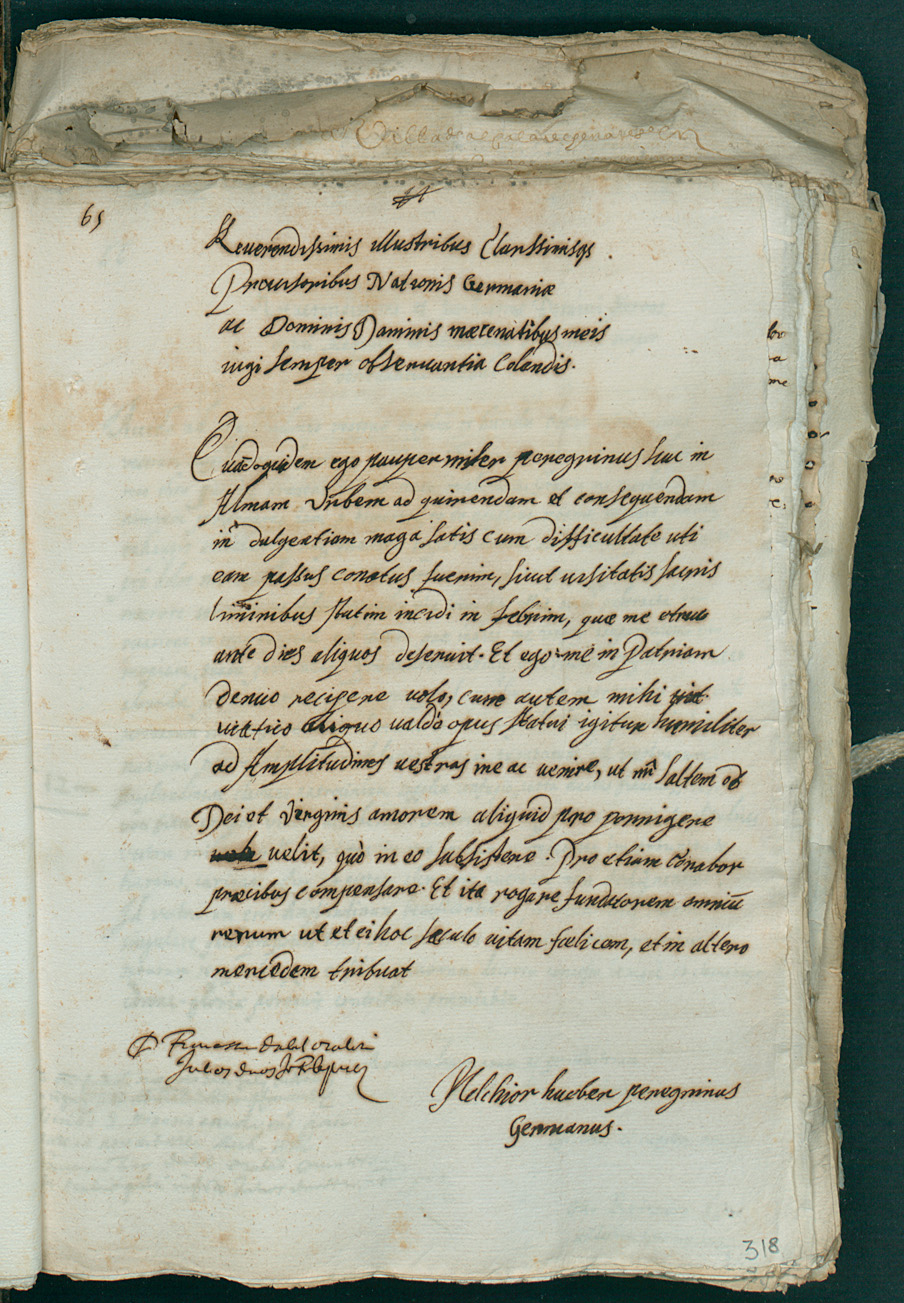 65
Reuerendissimis illustribus Clarissimisqs
Prouisoribus Nationis Germaniæ
ac Dominis Dominis mæcenatibus meis
iugi semper obseruantia Colendis.
ego pauper miser peregrinus huc in
Almam Vrbem ad quirendam et consequendam
in dulgentiam maga satis cum difficultate uti
eam passus conatus fuerim, sicut uisitatis sacris
liminibus statim incidi in febrim, quæ me
ante dies aliquos deseruit. Et ego me in Patriam
denuo recipere uolo, cum autem mihi
uiatico aliquo ualdè opus statui igitur humiliter
ad Amplitudines uestras me ac uenire, ut saltem ob
Dei et Virginis amorem aliquid pro porrigere
uelit, quò in eo subsistere. Pro etiam conabor
præcibus compensare. Et ita rogare fundatorem omniū
rerum ut et ei hoc sæculo uitam fælicem, et in altero
mercedem tribuat
Melchior hueber peregrinus
Germanus.
318